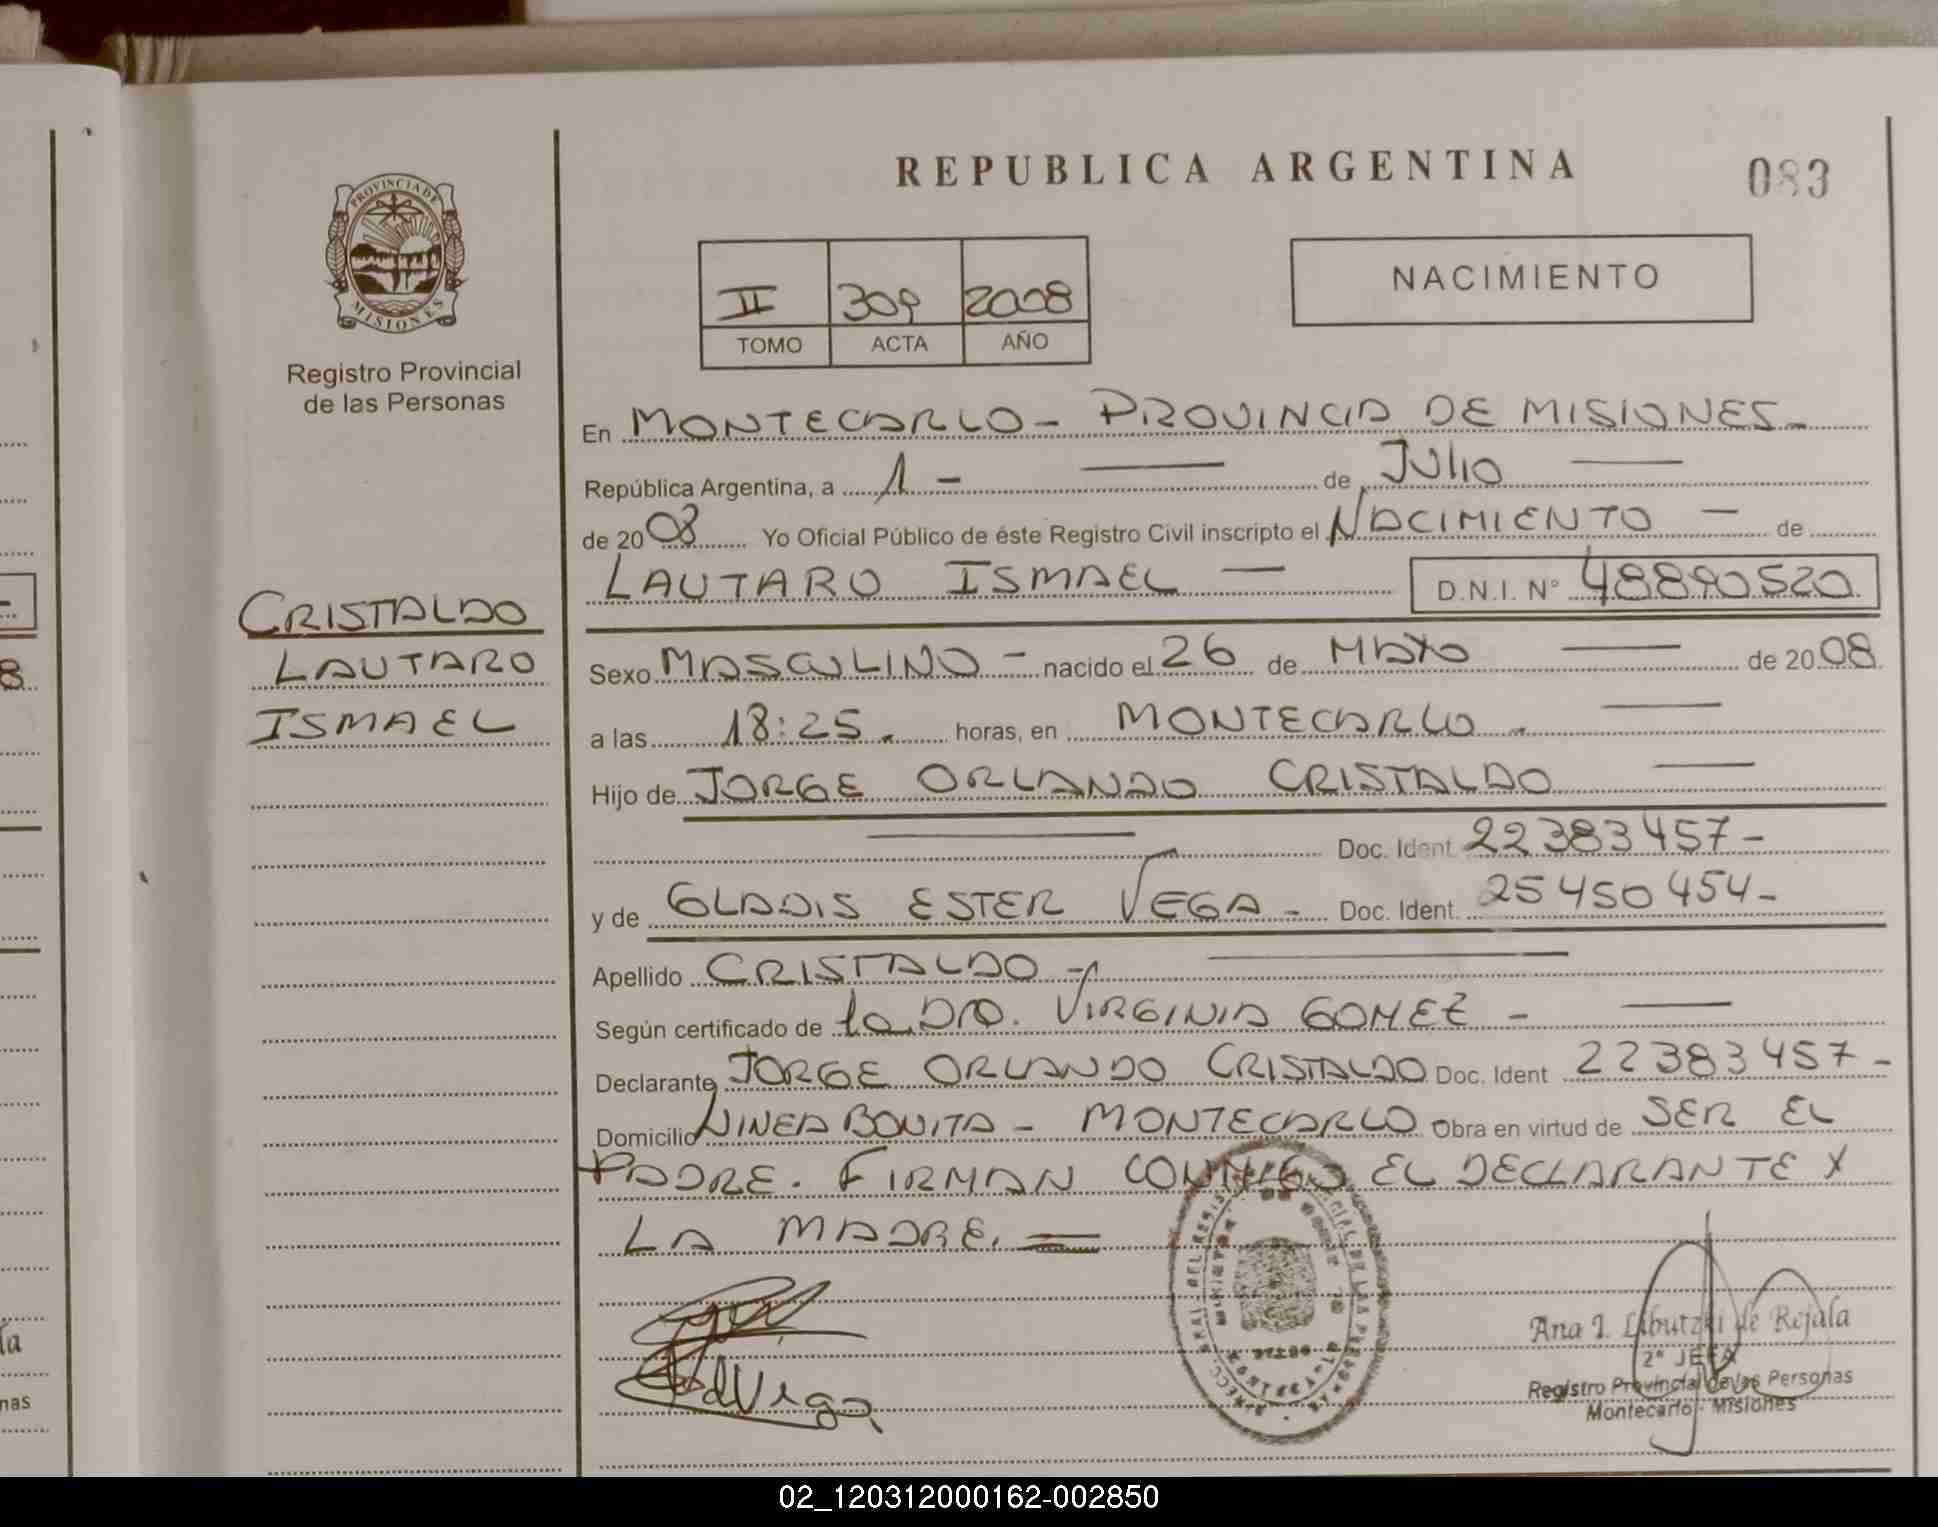 REPUBLICA ARGENTINA
083
PROVINCIA DE
MISIONES
Registro Provincial
de las Personas
II 309 2008
TOMO ACTA AÑO
NACIMIENTO
En MONTECARLO - PROVINCIA DE MISIONES -
República Argentina, a 1 - de JULIO
de 2008 Yo Oficial Público de éste Registro Civil inscripto el NACIMIENTO - de
LAUTARO ISMAEL - D.N.I. Nº 48890520
CRISTALDO
LAUTARO
ISMAEL
Sexo MASCULINO - nacido el 26 de MAYO de 2008
a las 18:25. horas, en MONTECARLO.
Hijo de JORGE ORLANDO CRISTALDO
Doc. Ident 22383457 -
y de GLADIS ESTER VEGA - Doc. Ident. 25450454 -
Apellido CRISTALDO -
Según certificado de la DRA. VIRGINIA GOMEZ -
Declarante JORGE ORLANDO CRISTALDO Doc. Ident 22383457 -
Domicilio LINEA BONITA - MONTECARLO Obra en virtud de SER EL
PADRE. FIRMAN CONMIGO EL DECLARANTE Y
LA MADRE.
Vega
Ana I. de Rojala
2ª JEFA
Registro Provincial de las Personas
Montecarlo - Misiones
02_120312000162-002850